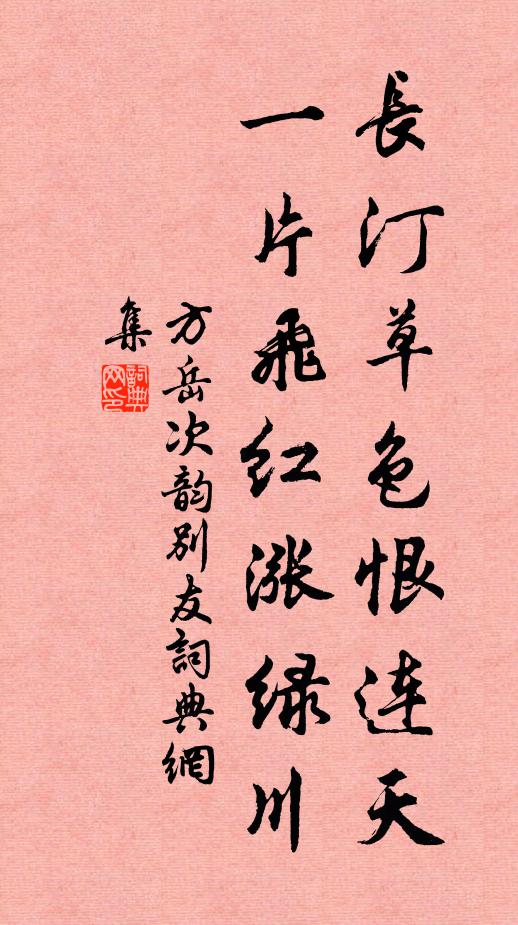 長汀草色恨連天
一片飛紅漲绿川
方岳次韵别友詞典網
集
詞典网印